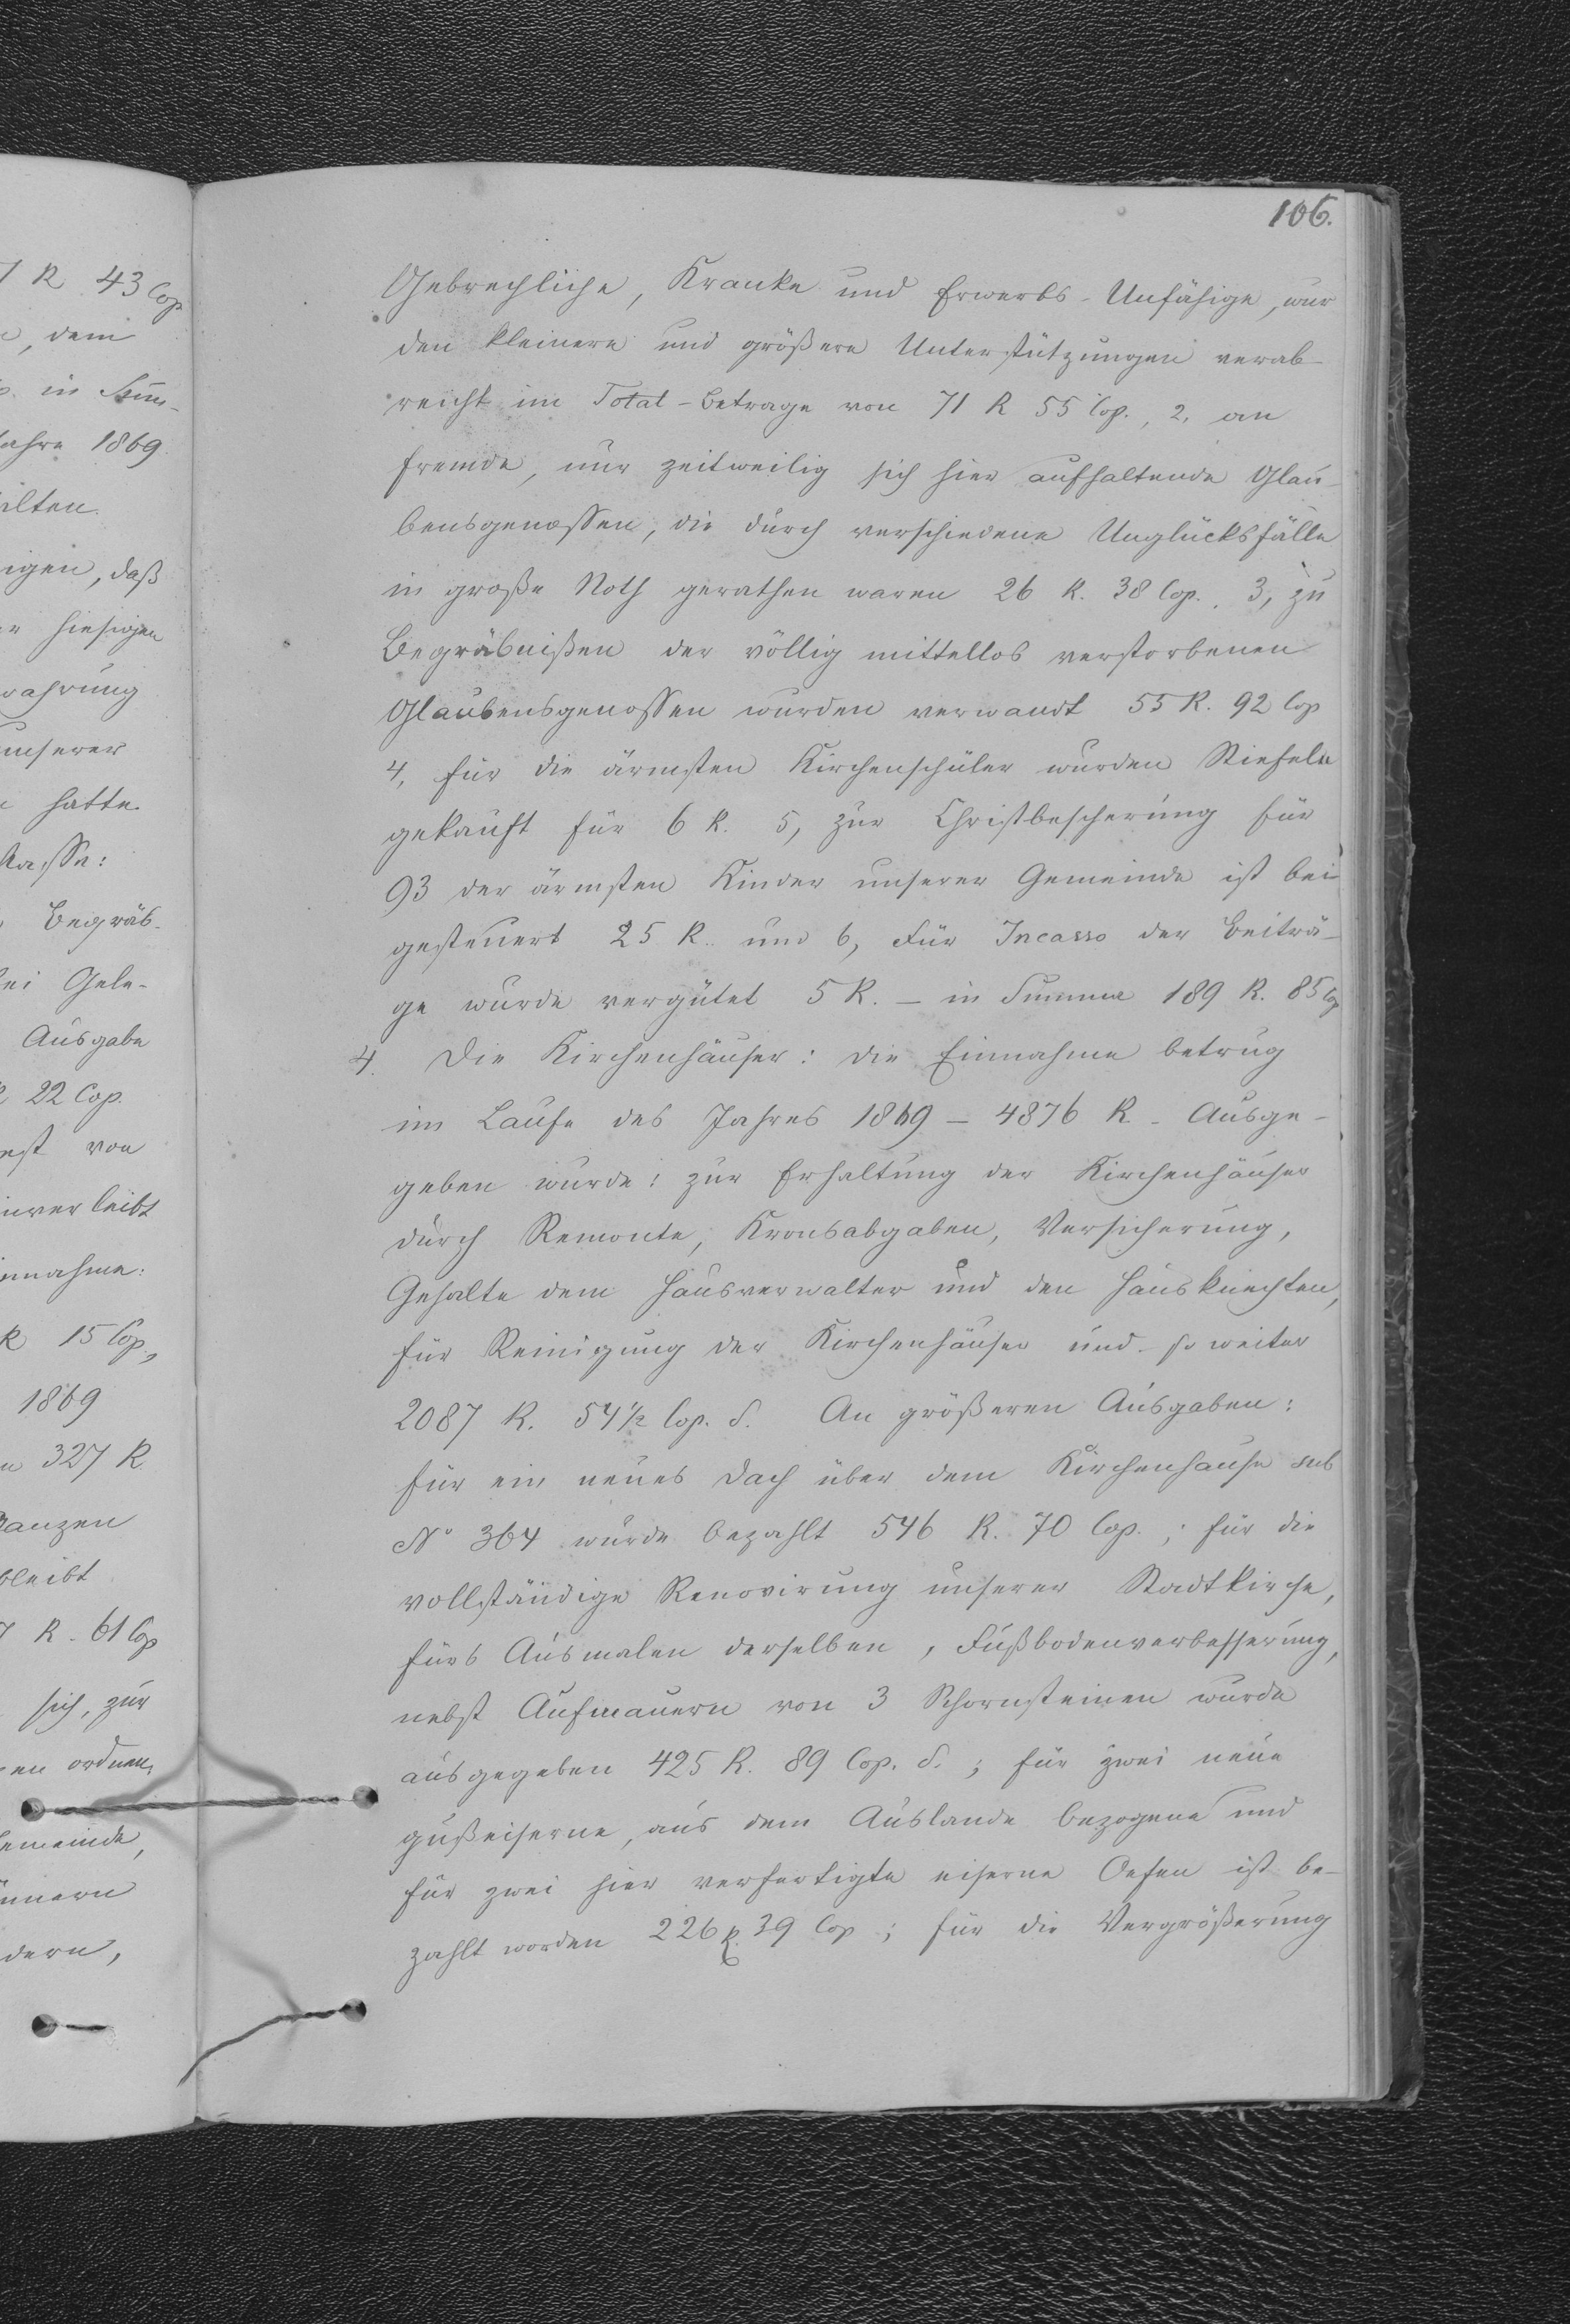 7 R 43 Cop
, dem
in Sum-
Jahre 1869
ilten.
igen, daß
hiesigen
wahrung
unserer
hatte.
Kasse:
Begräb-
bei Gele-
Ausgabe
22 Cop.
rest von
inverleibt
innahme:
R 15 Cop.,
1869
n 327 R.
ganzen
bleibt
7 R. 61 Cop
sich, zur
en ordnen,
Gemeinde,
innern
dern,
106.
Gebrechliche, Kranke und Erwerbs-Unfähige, wur
den kleinere und größere Unterstützungen verab-
reicht im Total-Betrage von 71 R 55 Cop., 2, an
fremde, nur zeitweilig sich hier aufhaltende Glau-
bensgenossen, die durch verschiedene Unglücksfälle
in große Noth gerathen waren 26 R. 38 Cop. 3, zu
Begräbnißen der völlig mittellos verstorbenen
Glaubensgenossen wurden verwandt 55 R. 92 Cop
4, für die ärmsten Kirchenschüler wurden Stiefeln
gekauft für 6 R. 5, zur Christbescherung für
93 der ärmsten Kinder unserer Gemeinde ist bei
gesteuert 25 R. und 6, für Incasso der Beiträ-
ge wurde vergütet 5 R. – in Summa 189 R. 85 Cop
4. Die Kirchenhäuser: die Einnahme betrug
im Laufe des Jahres 1869 – 4876 R. Ausge-
geben wurde: zur Erhaltung der Kirchenhäuser
durch Remonte, Kronsabgaben, Versicherung,
Gehalte dem Hausverwalter und den Hausknechten,
für Reinigung der Kirchenhäuser und so weiter
2087 R. 54½ Cop. S. An größeren Ausgaben:
für ein neues Dach über dem Kirchenhause sub
№ 364 wurde bezahlt 546 R. 70 Cop.; für die
vollständige Renovirung unserer Stadtkirche,
fürs Ausmalen derselben, Fußbodenverbesserung,
nebst Aufmauern von 3 Schornsteinen wurde
ausgegeben 425 R. 89 Cop. S.; für zwei neue
gußeiserne, aus dem Auslande bezogene und
für zwei hier verfertigte eiserne Oefen ist be-
zahlt worden 226 R. 39 Cop; für die Vergrößerung